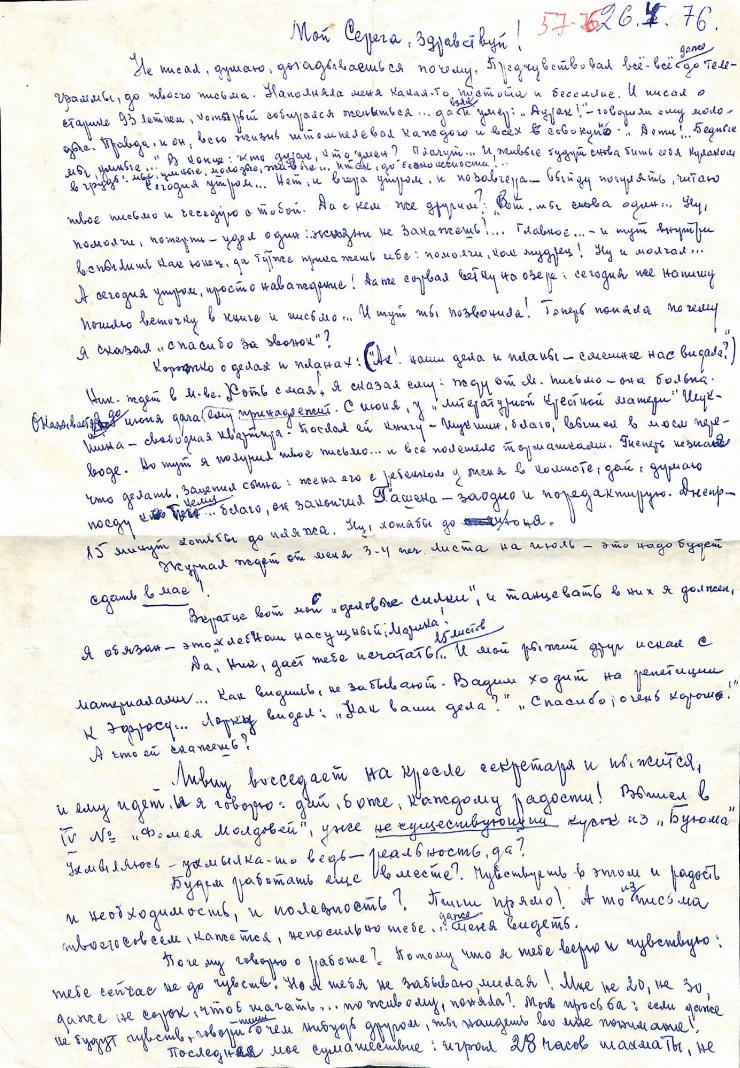 57-76 26.4.76.
Мой Серега, здравствуй!
Не писал, думаю, догадываешься почему. Предчувствовал всё-всё даже до теле-
граммы, до твоего письма. Наполняла меня какая-то пустота и бессилие. И писал о
старике 93 летнем, который собирался жениться... да взял и умер: „Дурак!" – говорили ему моло-
дые. Правда, и он, всю жизнь штемпелевал каждого и всех в совокуп: „Дети!.. Бедные
мы, умные..." В конце: кто дурак, кто умен? Плачут... И живые будут снова бить себя кулаком
в грудь: мы, умные, молодые, живые... и так до бесконечности!..
Сегодня утром... Нет, и вчера утром, и позавчера – выйду погулять, читаю
твое письмо и беседую с тобой. Да с кем же другим? „Вот, мы снова один... Ну,
помолчи, потерпи – удел один: жизни не закажешь!... Главное... – и тут внутри
вспылить как юнец, да тут же прикажешь себе: помолчи, как мудрец! Ну и молчал...
А сегодня утром, просто наваждение! Даже сорвал ветку на озере: сегодня же напишу
пошлю веточку в книге и письмо... И тут ты позвонила! Теперь поняла почему
я сказал „спасибо за звонок"?
Коротко о делах и планах: („Ах! наши дела и планы – смешнее нас видала?")
Ник. ждет в М-ве. Хоть с мая! Я сказал ему: жду от М. письмо – она больна.
Оказывается, до июня дача ему принадлежит. С июня, у „литературной крестной матери" Шук-
шина – свободная квартира. Послал ей книгу – Шукшин, благо, вышел в моем пере-
воде. Но тут я получил твое письмо... и все полетело тормашками. Теперь не знаю
что делать, зацепил сына: жена его с ребенком у меня в комнате, дай, думаю
поеду к нему... благо, он закончил – заодно и поредактирую. Днепр –
15 минут ходьбы до пляжа. Ну, хотябы до июня.
Журнал ждет от меня 3-4 печ. листа на июль – это надо будет
сдать в мае!
Вкратце вот мои „деловые силки", и танцевать в них я должен,
я обязан – это „хлеб наш насущный, Мамка!
Да, Ник, даст тебе печатать 25 листов... И мой рыжий друг искал с
материалами... Как видишь, не забывают. Вадим ходит на репетиции
к Эфросу... Лорку видел: „Как ваши дела?" „Спасибо, очень хорошо!"
А что ей скажешь?
Ливиу восседает на кресле секретаря и пыжится,
и ему идет, и я говорю: дай, боже, каждому радости! Вышел в
IV № „Фемея Молдовей", уже не существующий кусок из „Буюма"
Ухмыляюсь – ухмылка-то ведь – реальность, да?
Будем работать еще вместе? Чувствуешь в этом и радость
и необходимость, и полезность? Пиши прямо! А то из письма
твоего совсем, кажется, непосильно тебе... даже меня видеть.
Почему говорю о работе? Потому что я тебе верю и чувствую:
тебе сейчас не до чувств. Но я тебя не забываю, милая! Мне не 20, не 30,
даже не сорок, чтоб шагать... по живому, поняла? Моя просьба: если даже
не будут чувств, говори-пиши о чем нибудь другом, ты найдешь во мне понимание!
Последнее мое сумашествие: играл 28 часов шахматы, не